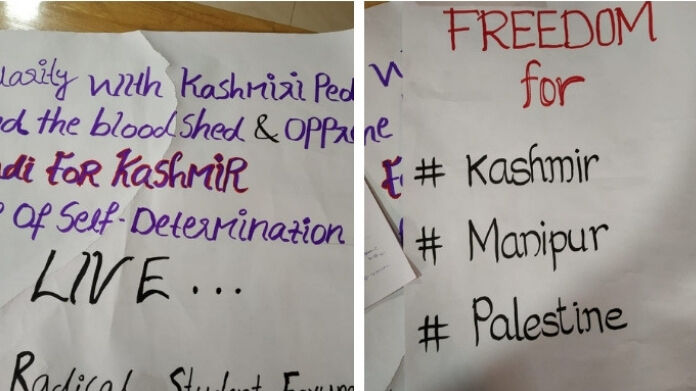 with Kashmiri
the blood shed &
FOR KASHMIR
Of Self-Determination
LIVE ...
Radical Student
FREEDOM
for
# Kashmir
# Manipur
# Palestine